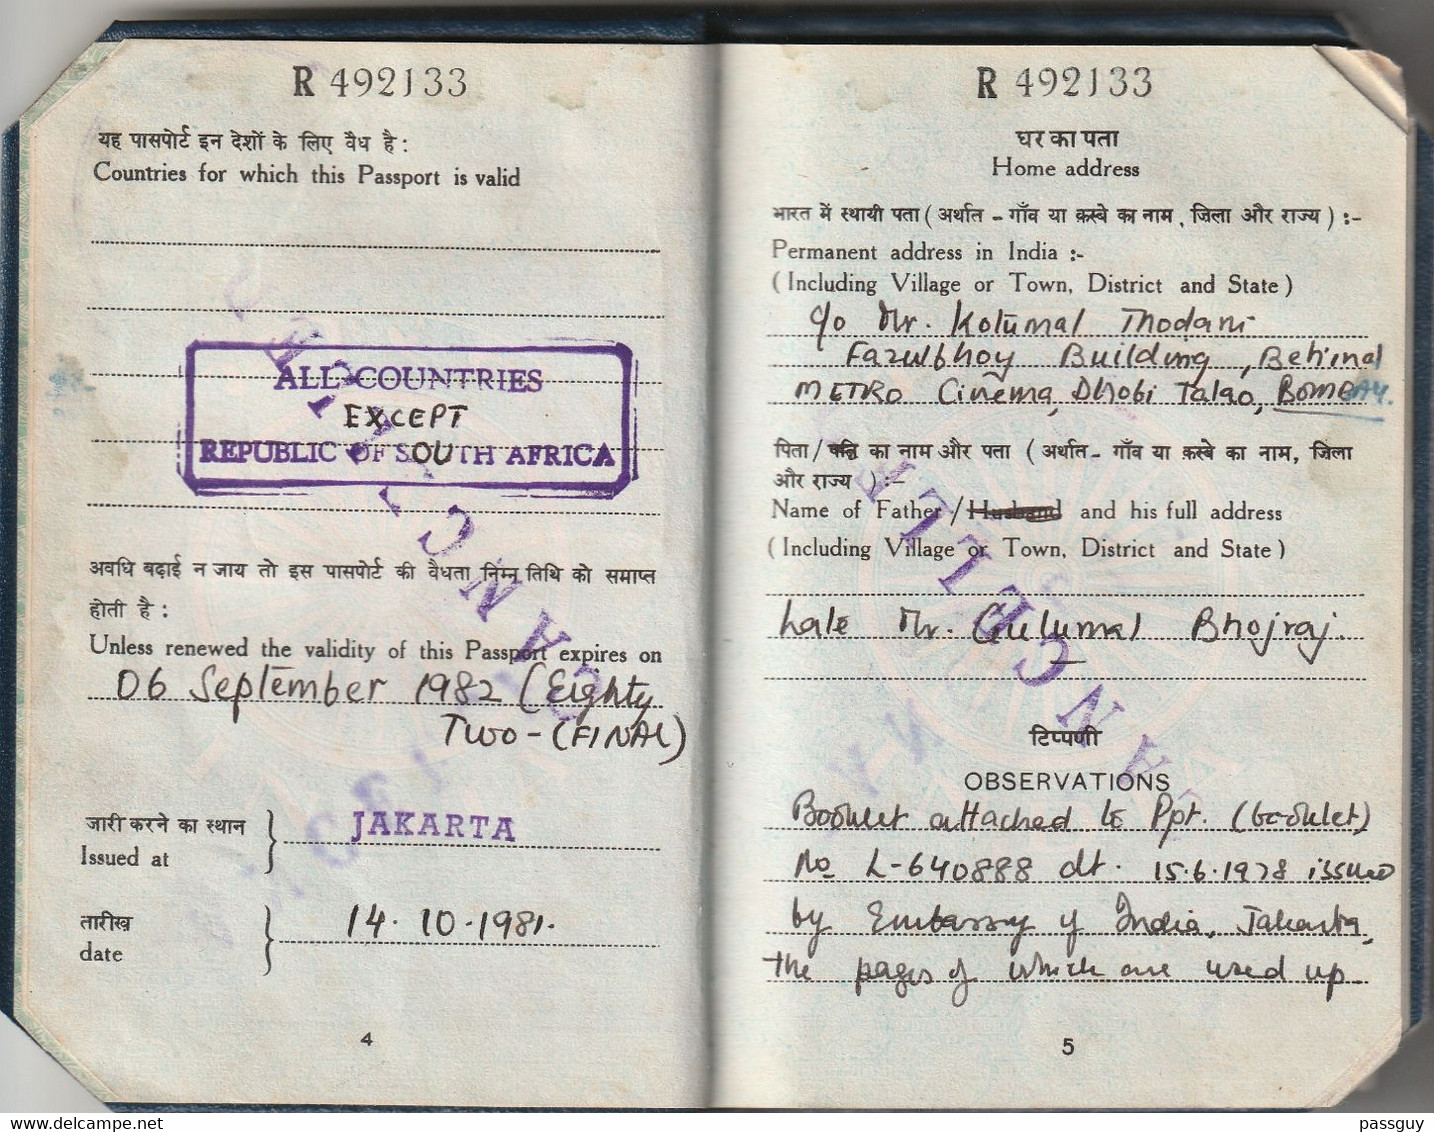 R 492133
यह पासपोर्ट इन देशों के लिए वैध है :
Countries for which this Passport is valid
ALL COUNTRIES
EXCEPT
REPUBLIC OF SOUTH AFRICA
CANCELLED
अवधि बढ़ाई न जाय तो इस पासपोर्ट की वैधता निम्न तिथि को समाप्त
होती है :
Unless renewed the validity of this Passport expires on
06 September 1982 (Eighty
Two - (FINAL)
जारी करने का स्थान
Issued at
JAKARTA
तारीख
date
14.10.1981.
4
R 492133
घर का पता
Home address
भारत में स्थायी पता ( अर्थात - गाँव या क़स्बे का नाम, जिला और राज्य ) :-
Permanent address in India :-
( Including Village or Town, District and State )
c/o Mr. Kotumal Thodani
Fazulbhoy Building, Behind
METRO Cinema, Dhobi Talao, BOMBAY.
पिता / पति का नाम और पता ( अर्थात- गाँव या क़स्बे का नाम, जिला
और राज्य ) :-
Name of Father / Husband and his full address
( Including Village or Town, District and State )
Late Mr. Gulumal Bhojraj.
CANCELLED
टिप्पणी
OBSERVATIONS
Booklet attached to Ppt. (booklet)
No L-640888 dt. 15.6.1978 issued
by Embassy of India, Jakarta,
the pages of which are used up.
5
www.delcampe.net
passguy